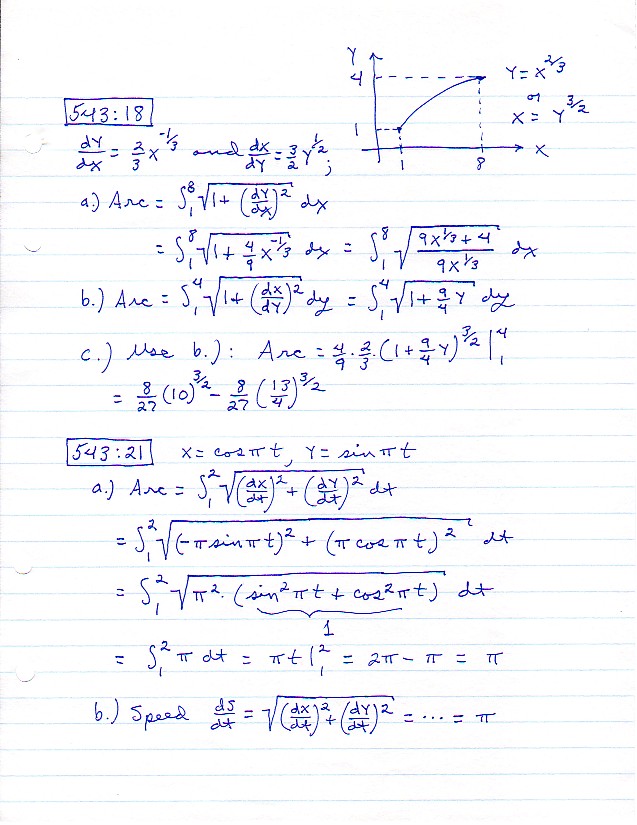 Y
4
1
1
8
X
Y = X^{2/3}
or
X = Y^{3/2}
543:18
dY/dX = 2/3 X^{-1/3} and dX/dY = 3/2 Y^{1/2};
a.) Arc = ∫_1^8 √(1 + (dY/dX)^2) dX
= ∫_1^8 √(1 + 4/9 X^{-1/3}) dX = ∫_1^8 √((9X^{1/3} + 4)/(9X^{1/3})) dX
b.) Arc = ∫_1^4 √(1 + (dX/dY)^2) dy = ∫_1^4 √(1 + 9/4 Y) dy
c.) Use b.): Arc = 4/9 · 2/3 · (1 + 9/4 Y)^{3/2} |_1^4
= 8/27 (10)^{3/2} - 8/27 (13/4)^{3/2}
543:21 X = cos πt, Y = sin πt
a.) Arc = ∫_1^2 √((dX/dt)^2 + (dY/dt)^2) dt
= ∫_1^2 √((-π sin πt)^2 + (π cos πt)^2) dt
= ∫_1^2 √(π^2 · (sin^2 πt + cos^2 πt)) dt
1
= ∫_1^2 π dt = πt |_1^2 = 2π - π = π
b.) Speed dS/dt = √((dX/dt)^2 + (dY/dt)^2) = ··· = π